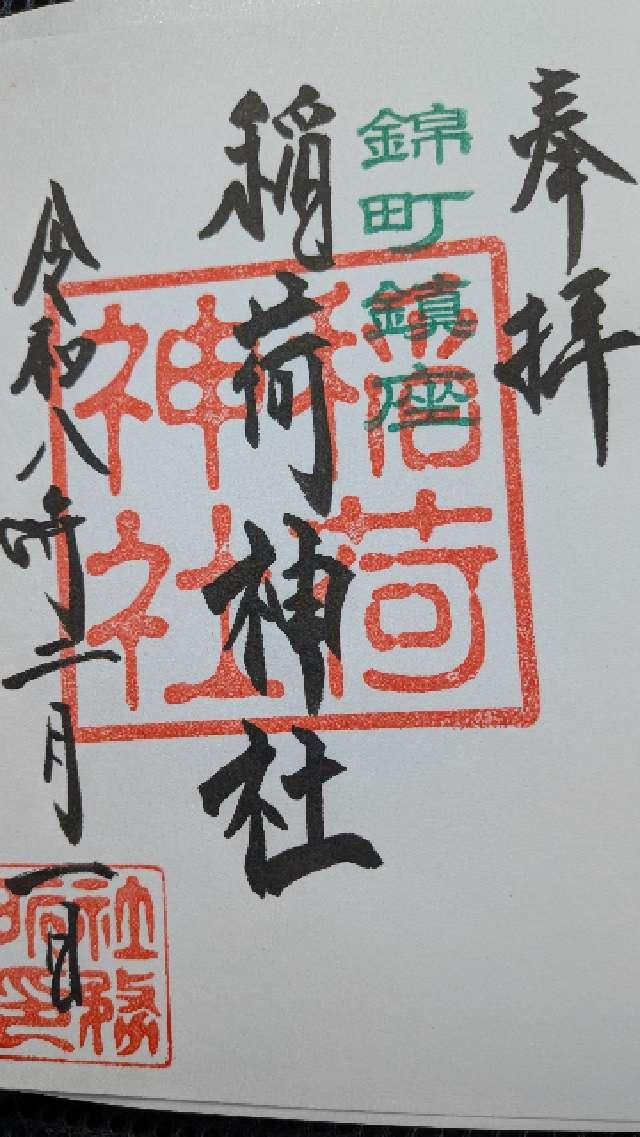 奉拝
錦町鎮座
稲荷神社
稲荷神社
令和八年二月一日
社務所印